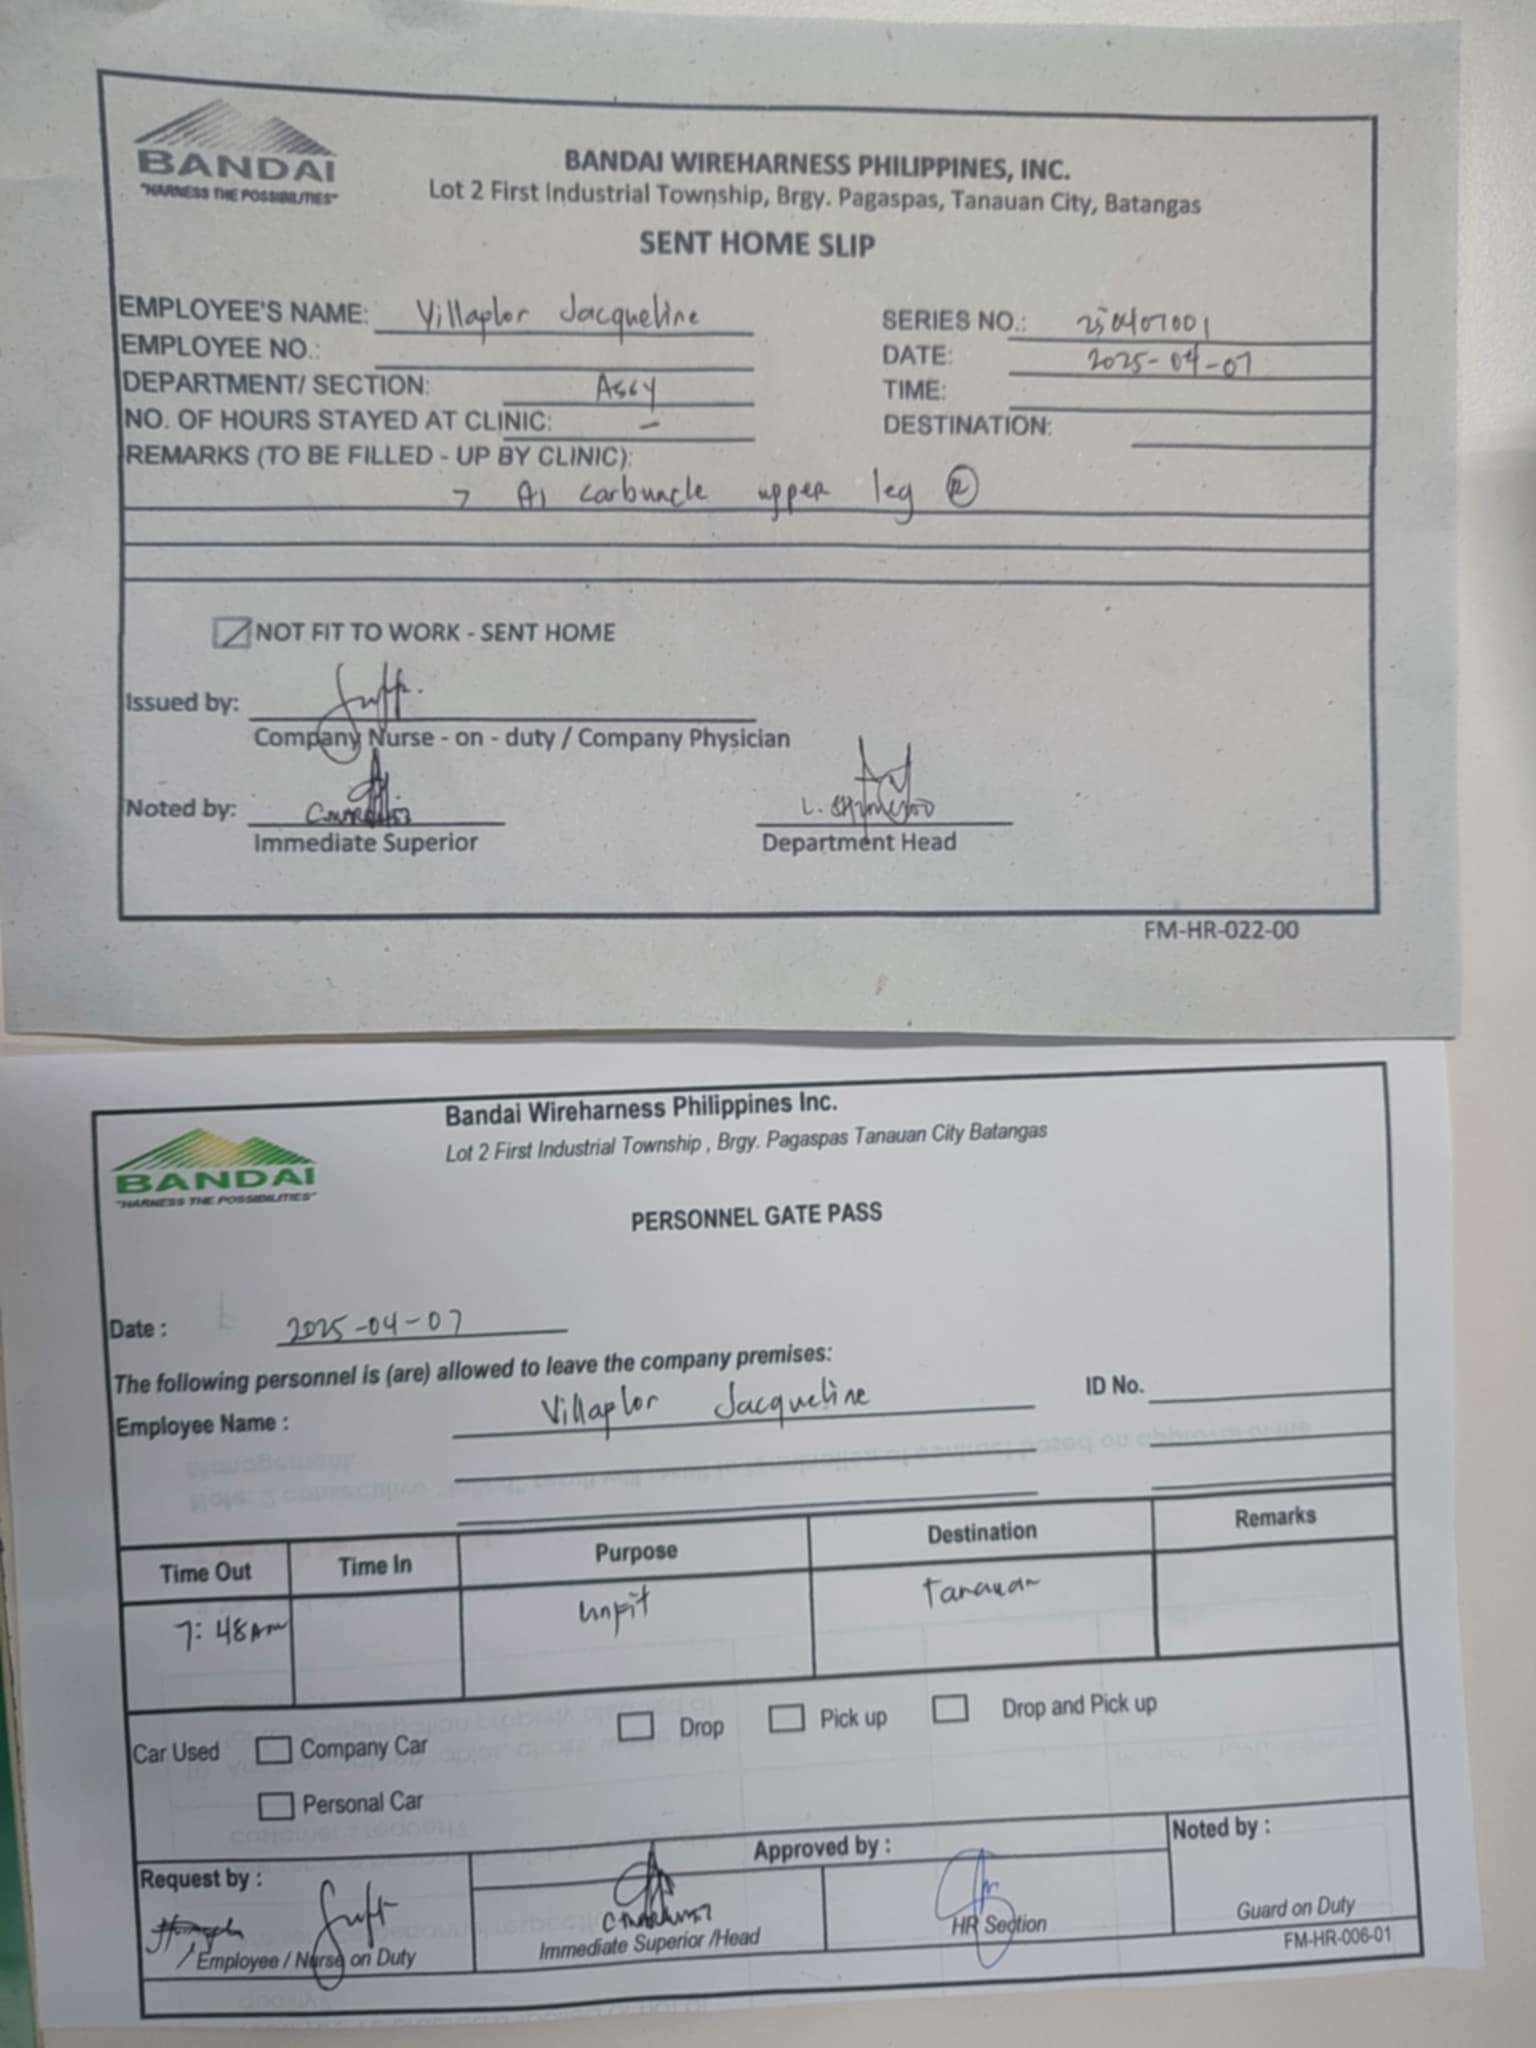 BANDAI
"HARNESS THE POSSIBILITIES"
BANDAI WIREHARNESS PHILIPPINES, INC.
Lot 2 First Industrial Township, Brgy. Pagaspas, Tanauan City, Batangas
SENT HOME SLIP
EMPLOYEE'S NAME: Villaplor Jacqueline
SERIES NO.: 250407001
EMPLOYEE NO.:
DATE: 2025-04-07
DEPARTMENT/ SECTION: Assy
TIME:
NO. OF HOURS STAYED AT CLINIC: -
DESTINATION:
REMARKS (TO BE FILLED - UP BY CLINIC):
carbuncle upper leg R
NOT FIT TO WORK - SENT HOME
Issued by:
Company Nurse - on - duty / Company Physician
Noted by:
Immediate Superior
Department Head
FM-HR-022-00
BANDAI
"HARNESS THE POSSIBILITIES"
Bandai Wireharness Philippines Inc.
Lot 2 First Industrial Township , Brgy. Pagaspas Tanauan City Batangas
PERSONNEL GATE PASS
Date : 2025-04-07
The following personnel is (are) allowed to leave the company premises:
Employee Name : Villaplor Jacqueline
ID No.
Time Out Time In Purpose Destination Remarks
7:48am unfit Tanauan
Drop Pick up Drop and Pick up
Car Used Company Car
Personal Car
Request by :
Approved by :
Noted by :
Employee / Nurse on Duty
Immediate Superior /Head
HR Section
Guard on Duty
FM-HR-006-01